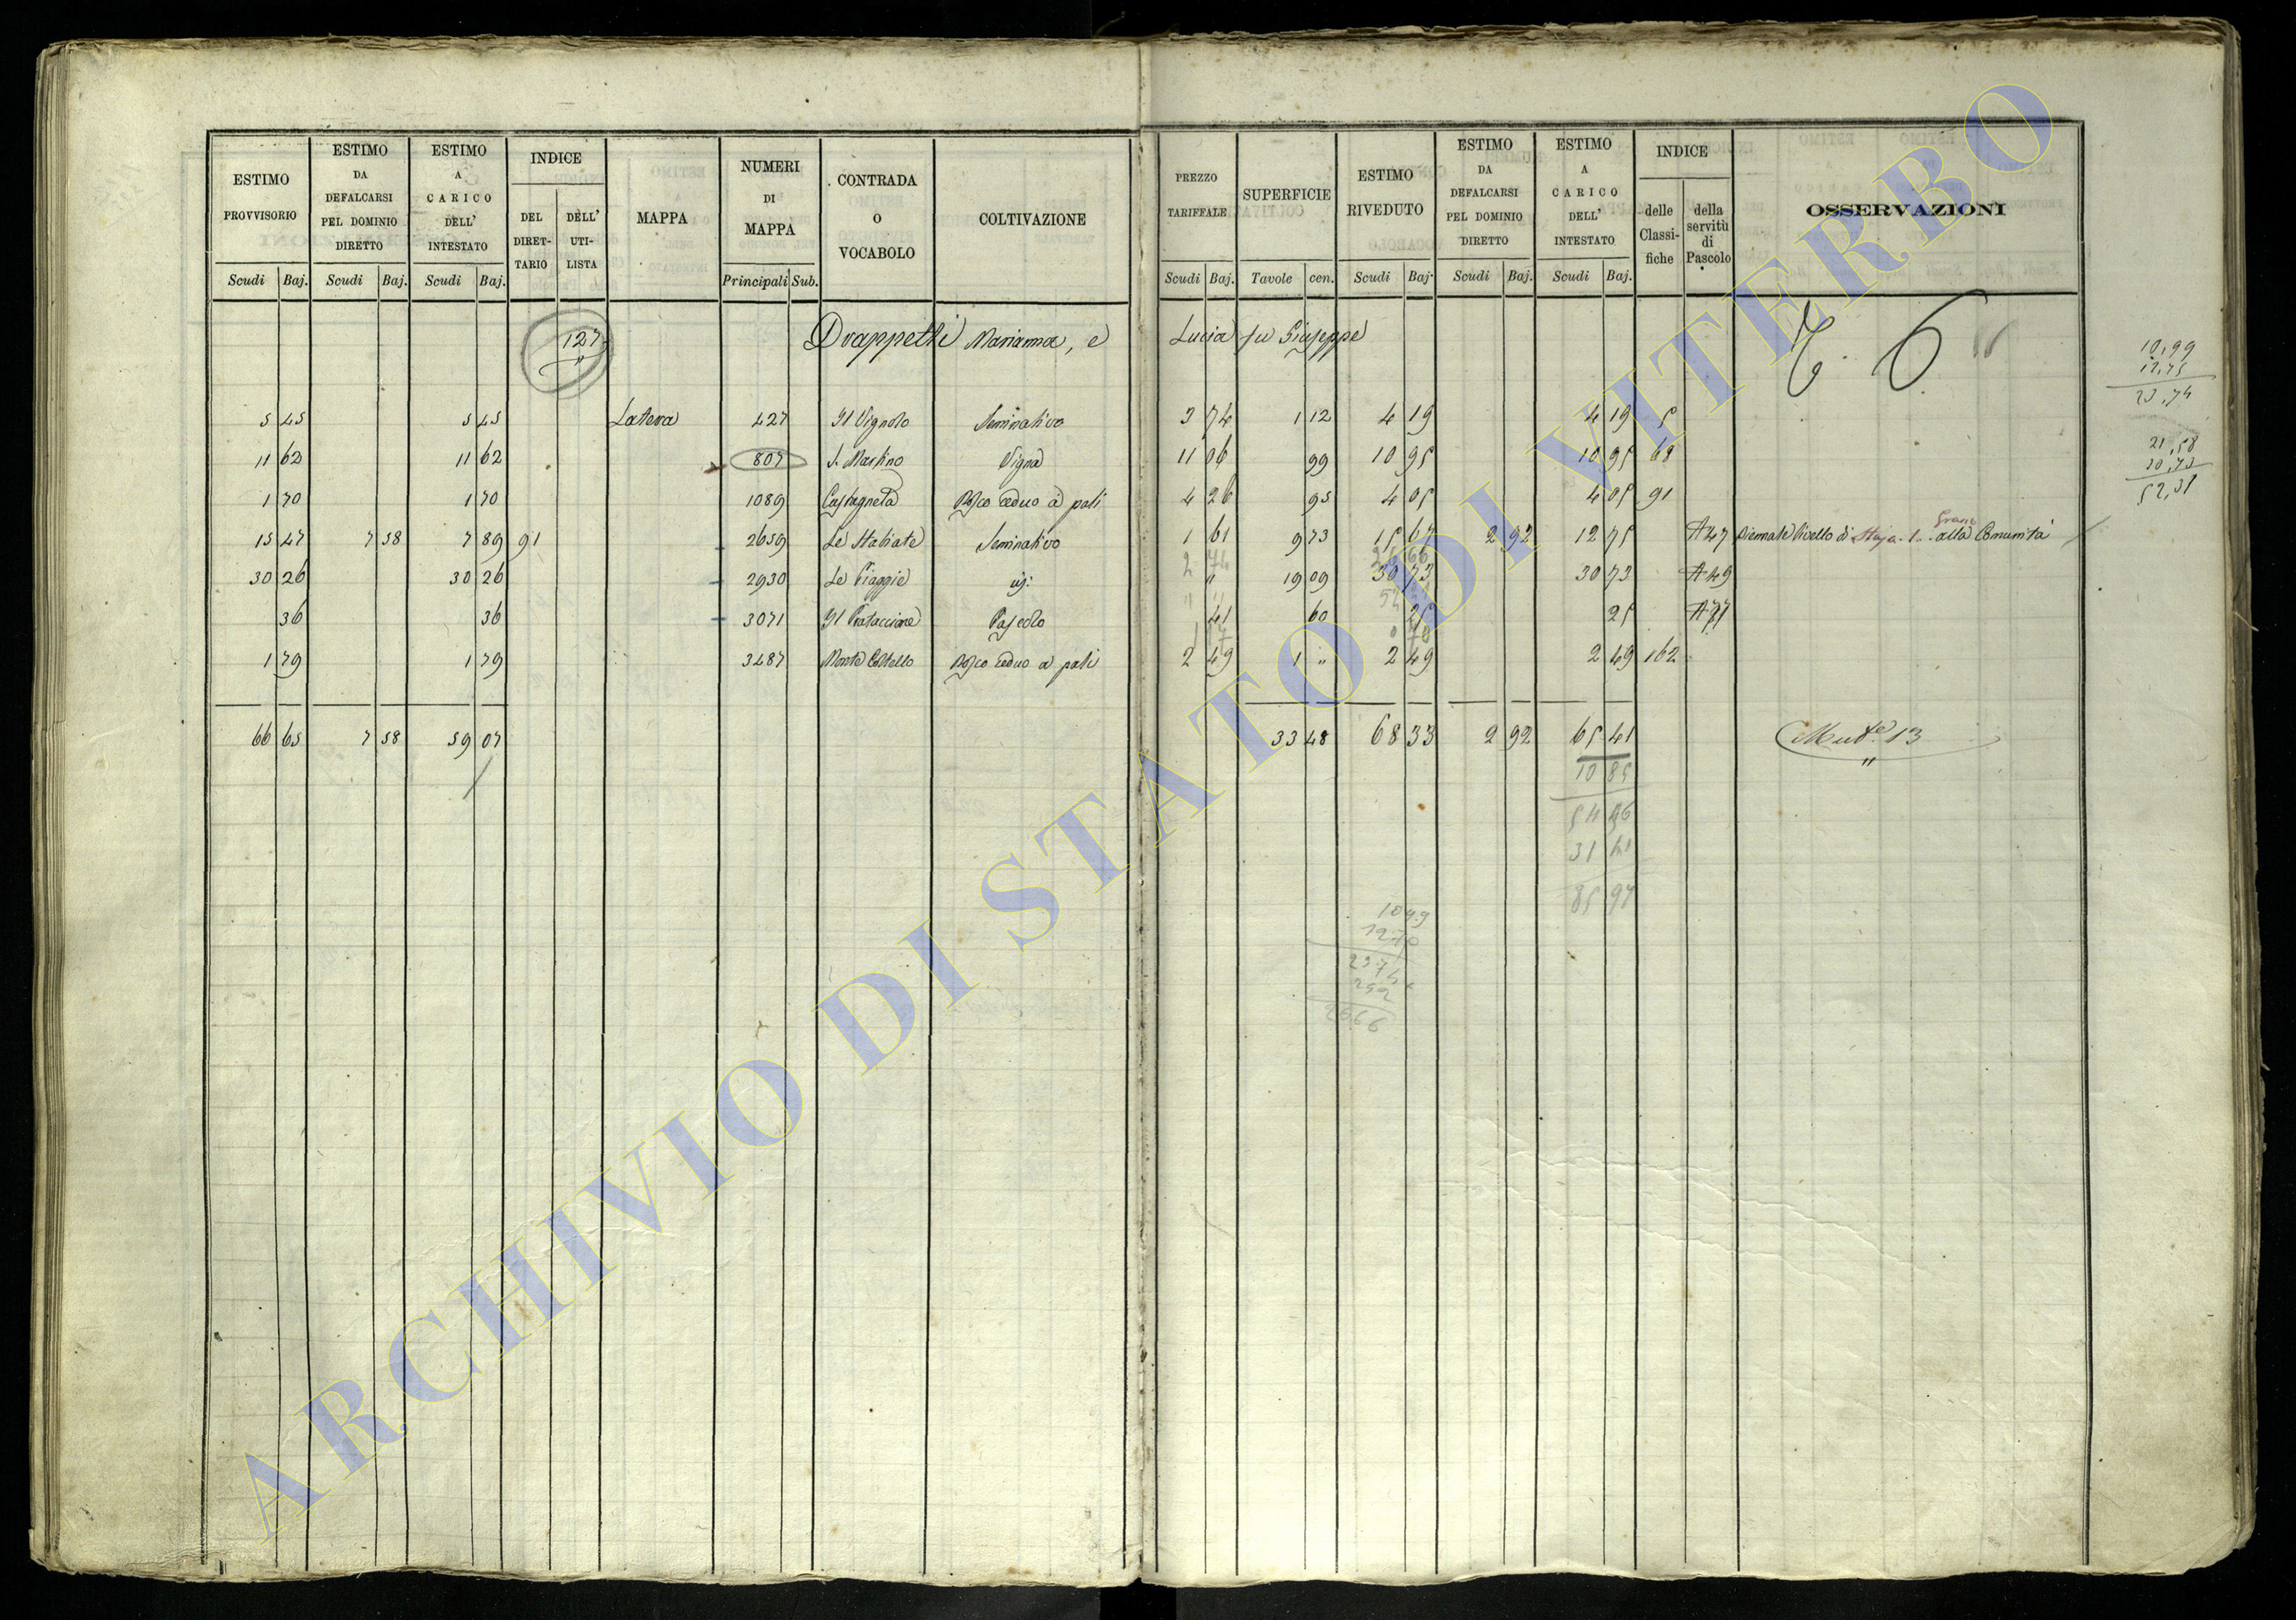 ESTIMO PROVVISORIO
ESTIMO DA DEFALCARSI PEL DOMINIO DIRETTO
ESTIMO A CARICO DELL' INTESTATO
INDICE
DEL DIRET-TARIO
DELL' UTI-LISTA
MAPPA
NUMERI DI MAPPA
CONTRADA O VOCABOLO
COLTIVAZIONE
PREZZO TARIFFALE
SUPERFICIE
ESTIMO RIVEDUTO
ESTIMO DA DEFALCARSI PEL DOMINIO DIRETTO
ESTIMO A CARICO DELL' INTESTATO
INDICE
delle Classi-fiche
della servitù di Pascolo
OSSERVAZIONI
Scudi Baj. Scudi Baj. Scudi Baj. Principali Sub. Scudi Baj. Tavole cen. Scudi Baj. Scudi Baj. Scudi Baj.
127 Drappetti Marianna, e Lucia fu Giuseppe 6
5 45 5 45 Latera 427 Il Vignolo Seminativo 3 74 1 12 4 19 4 19 5
11 62 11 62 807 S. Martino Vigna 11 06 99 10 95 10 95 68
1 70 1 70 1089 Castagneta Bosco ceduo a pali 4 26 95 4 05 4 05 91
15 47 7 58 7 89 91 2659 Le Stabiate Seminativo 1 61 9 73 15 67 2 92 12 75 A47 Biennale livello di Staja 1 Grano alla Comunità
30 26 30 26 2930 Le Piaggie id: " 19 09 30 73 30 73 A49
36 36 3071 Il Prataccione Pascolo 41 60 25 25 A71
1 79 1 79 3487 Monte Coltello Bosco ceduo a pali 2 49 1 " 2 49 2 49 162
66 65 7 58 59 07 33 48 68 33 2 92 65 41 13
10 85
54 56
31 41
85 97
10,99
12,75
23,74
21,58
30,73
52,31
1099
1275
2374
292
2666
ARCHIVIO DI STATO DI VITERBO